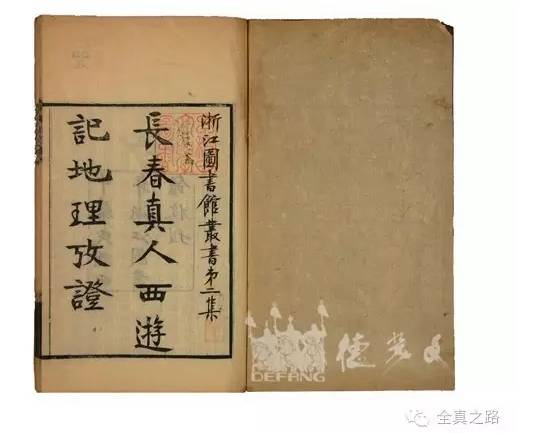 浙江圖書館叢書第二集
長春真人西遊
記地理攷證
DEFANG
全真之路